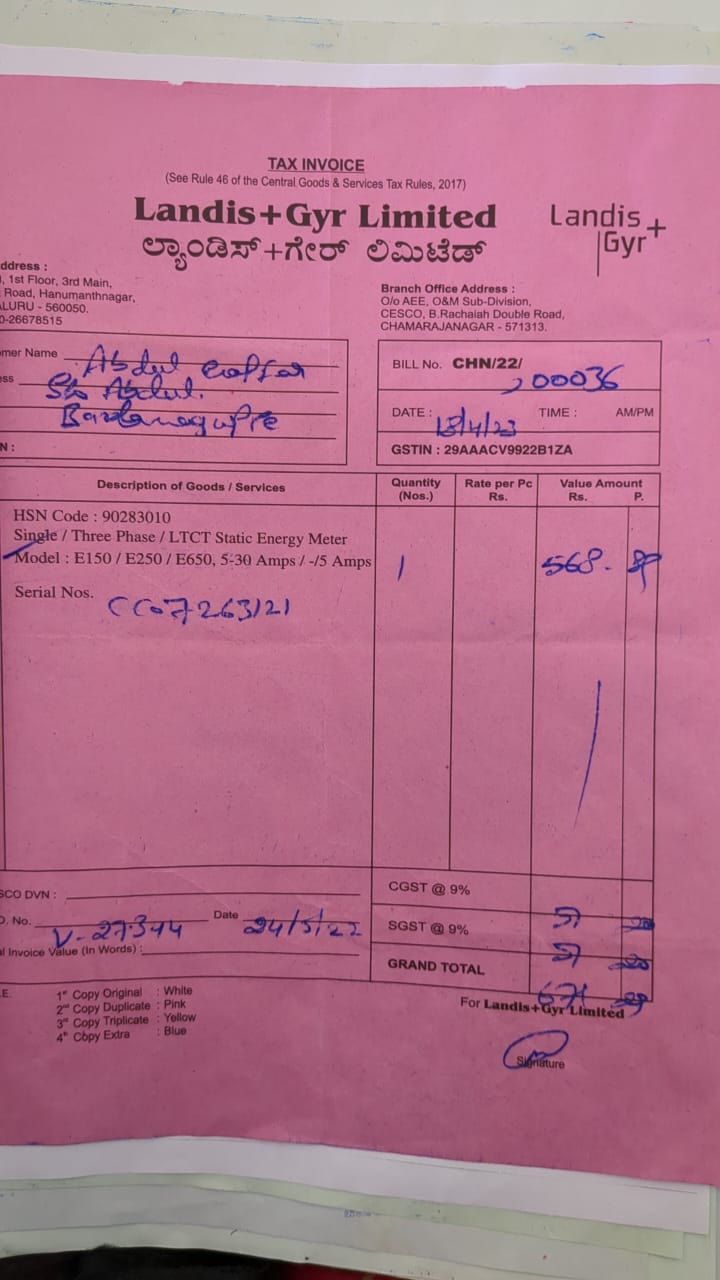 TAX INVOICE
(See Rule 46 of the Central Goods & Services Tax Rules, 2017)
Landis+Gyr Limited
ಲ್ಯಾಂಡಿಸ್+ಗೇರ್ ಲಿಮಿಟೆಡ್
Landis+
Gyr
ddress :
, 1st Floor, 3rd Main,
Road, Hanumanthnagar,
ALURU - 560050.
0-26678515
Branch Office Address :
O/o AEE, O&M Sub-Division,
CESCO, B.Rachaiah Double Road,
CHAMARAJANAGAR - 571313.
omer Name Abdul
ess S/o Abdul.
N :
BILL No. CHN/22/
00036
DATE : 18/4/23 TIME : AM/PM
GSTIN : 29AAACV9922B1ZA
Description of Goods / Services Quantity (Nos.) Rate per Pc Rs. Value Amount Rs. P.
HSN Code : 90283010
Single / Three Phase / LTCT Static Energy Meter
Model : E150 / E250 / E650, 5-30 Amps / -/5 Amps 1 568.
Serial Nos. CC07263121
SCO DVN :
O. No. V-27344 Date 24/5/22
al Invoice Value (In Words) :
CGST @ 9% 51
SGST @ 9% 51
GRAND TOTAL 671
.E. 1st Copy Original : White
2nd Copy Duplicate : Pink
3rd Copy Triplicate : Yellow
4th Copy Extra : Blue
For Landis+Gyr Limited
Signature